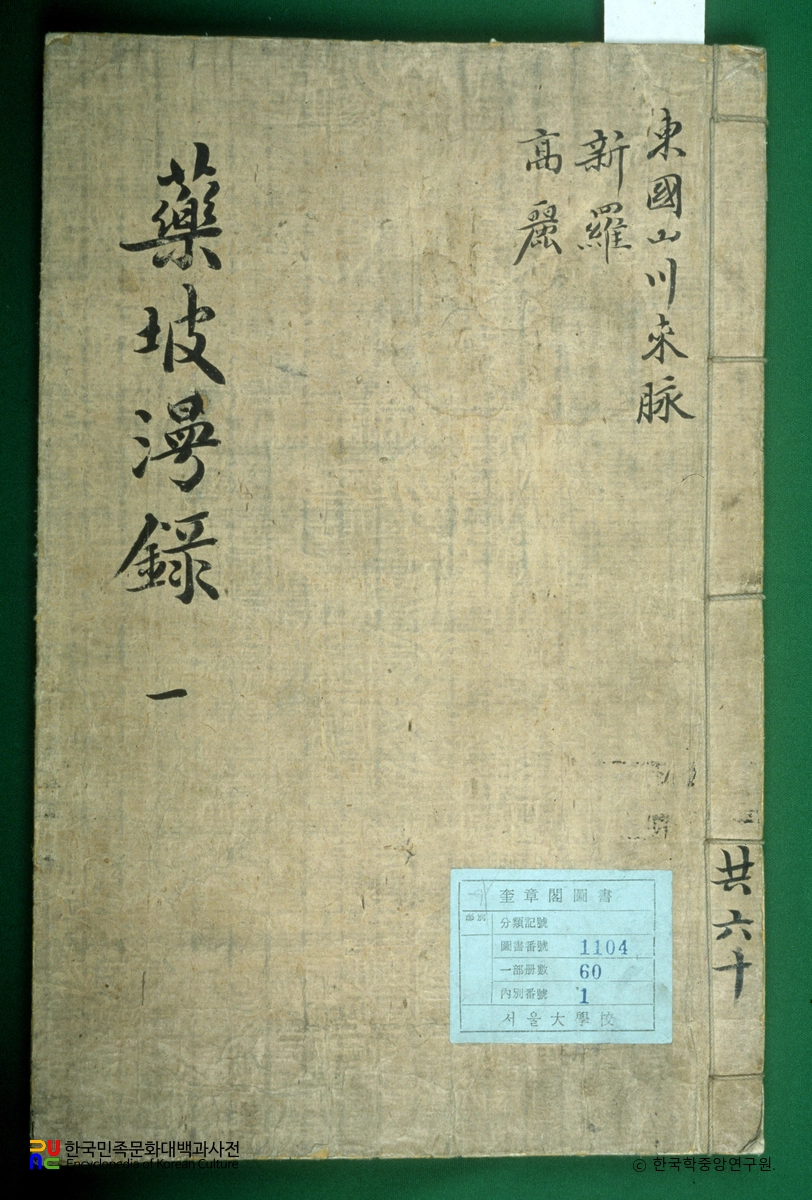 東國山川來脉
新羅
高麗
藥坡漫錄
一
共六十
奎章閣圖書
部別
分類記號
圖書番號 1104
一部册數 60
內別番號 1
서울大學校
한국민족문화대백과사전
Encyclopedia of Korean Culture
© 한국학중앙연구원.